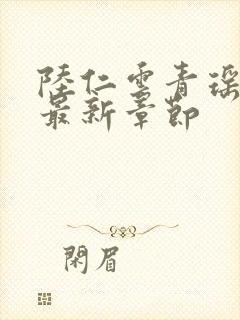 陸仁雲青瑶
最新章節
閑眉